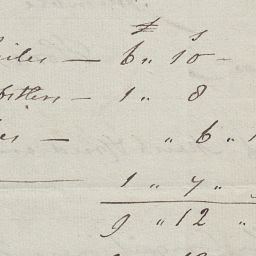 £ s
iles — 6 „ 10 –
ostlers – 1 „ 8
es — „ 6 „
1 „ 7 „
9 „ 12 „